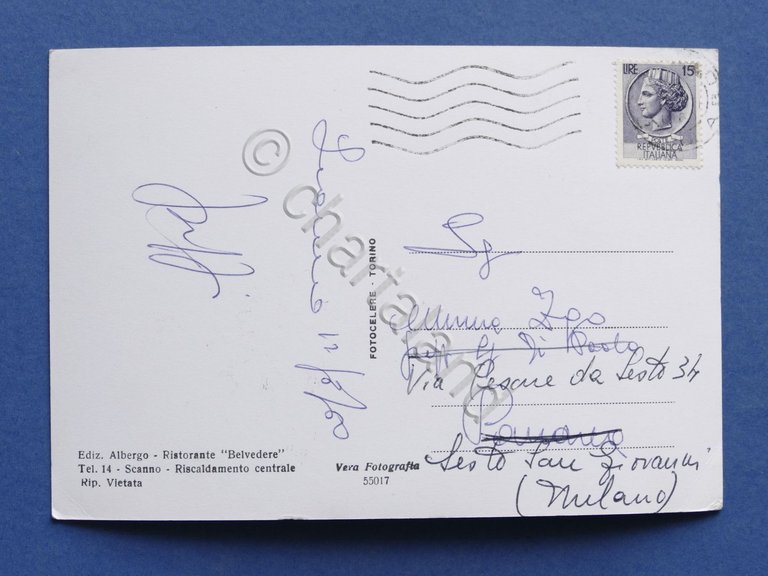 LIRE 15
REPVBBLICA
ITALIANA
© chartaland
Scanno 12/8/60
FOTOCELERE - TORINO
Sg
Zgo
Di Paolo
Via Cesare da Sesto 34
Sesto San Giovanni
(Milano)
Ediz. Albergo - Ristorante "Belvedere"
Tel. 14 - Scanno - Riscaldamento centrale
Rip. Vietata
Vera Fotografia
55017